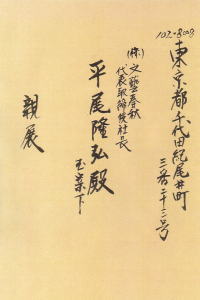 102-8008
東京都千代田紀尾井町
三番二十三号
(株)文藝春秋
代表取締役社長
平尾隆弘殿
玉案下
親展